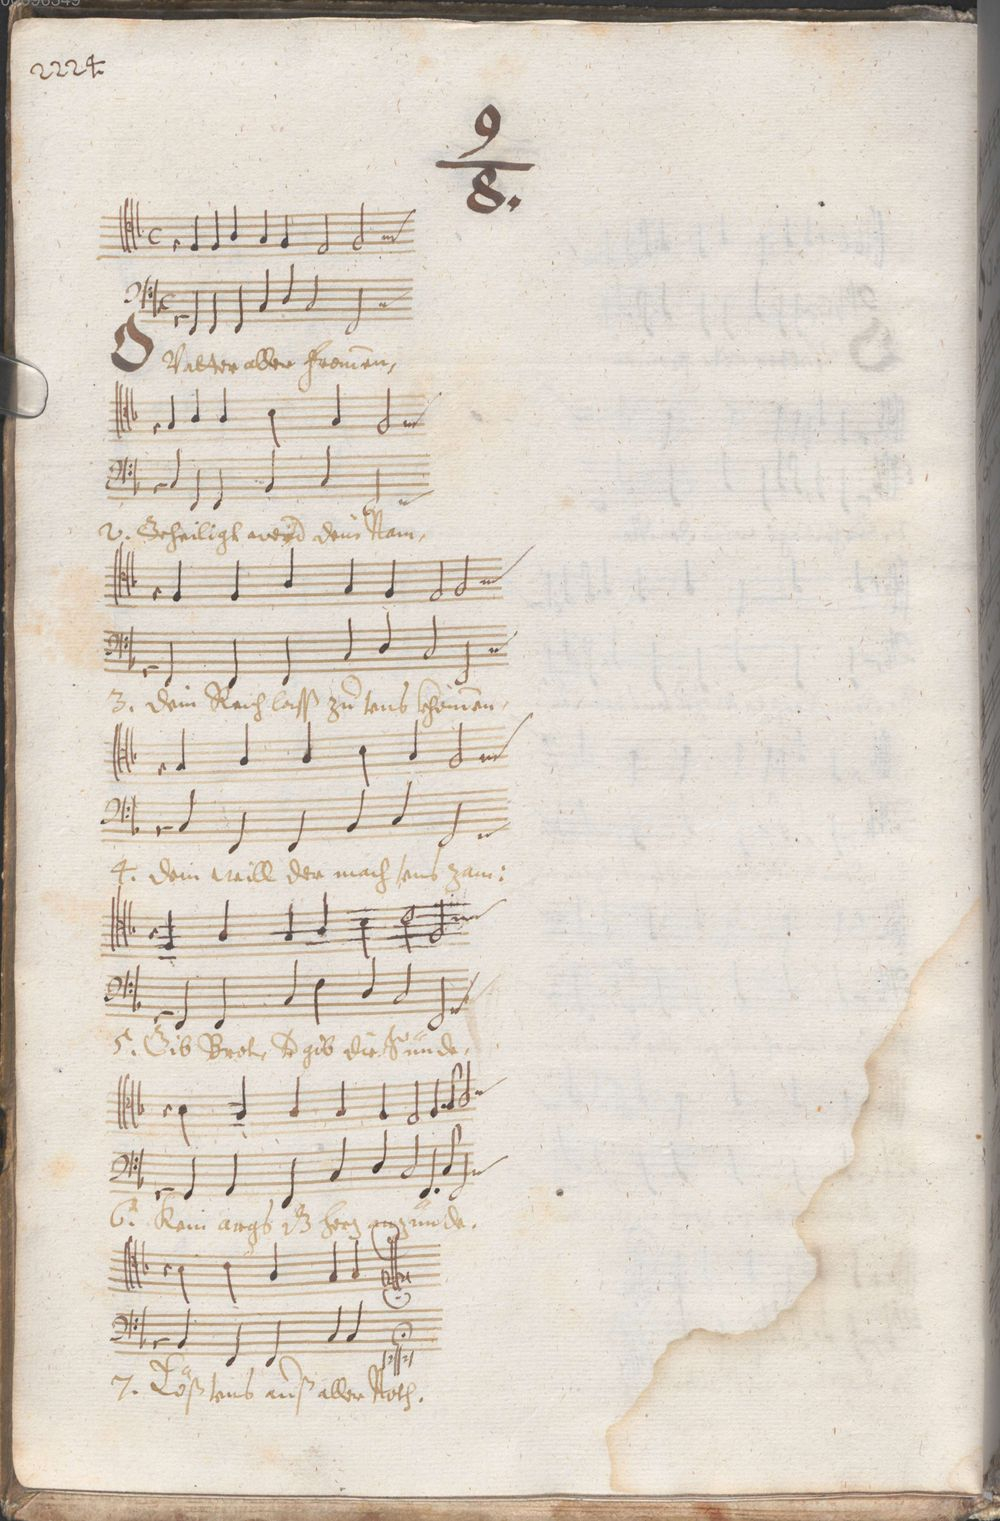 2224.
9
8.
O Vatter aller from̄en,
2. Geheiligt werd dein Nam,
3. dein Reich lass zu vns khom̄en,
4. dein will der mach vns zam:
5. Gib Brot, v̄gib die Sünde,
6. Kein args dz herz anzünde.
7. Löß vns auß aller Noth.